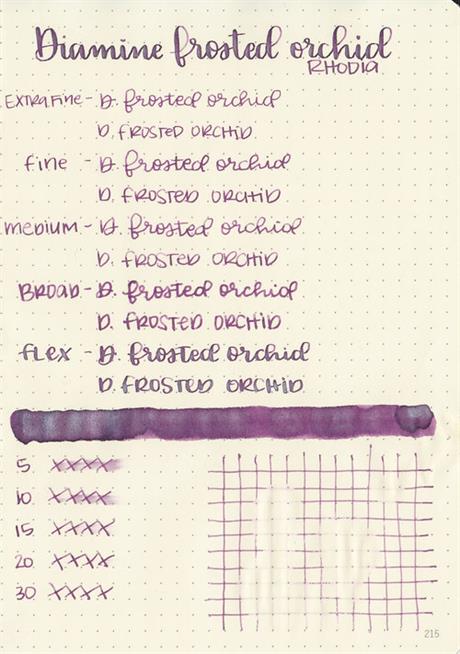 Diamine frosted orchid
RHODIA
EXTRA FINE - D. frosted orchid
D. FROSTED ORCHID
fine - D. frosted orchid
D. FROSTED ORCHID
medium - D. frosted orchid
D. FROSTED ORCHID
BROAD - D. frosted orchid
D. FROSTED ORCHID
flex - D. frosted orchid
D. FROSTED ORCHID
5 XXXX
10 XXXX
15 XXXX
20 XXXX
30 XXXX
215